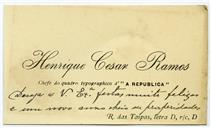 Henrique Cesar Ramos
Chefe do quadro typographico d'"A REPUBLICA"
Deseja a V. Ex.ª festas muito felizes
e um novo anno cheio de prosperidades
R. das Taipas, letra D, r/c, D